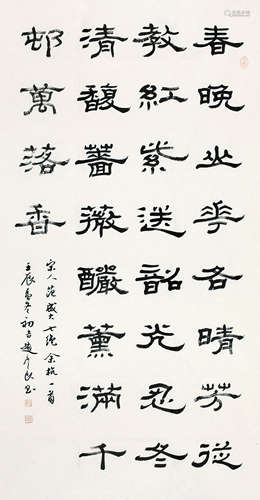 春晚山華各晴芳從
教紅紫送韶光忍冬
清馥薔薇釅薰滿千
邨萬落香
宋人范成大七絕余杭一首
壬辰孟冬初吉趙書